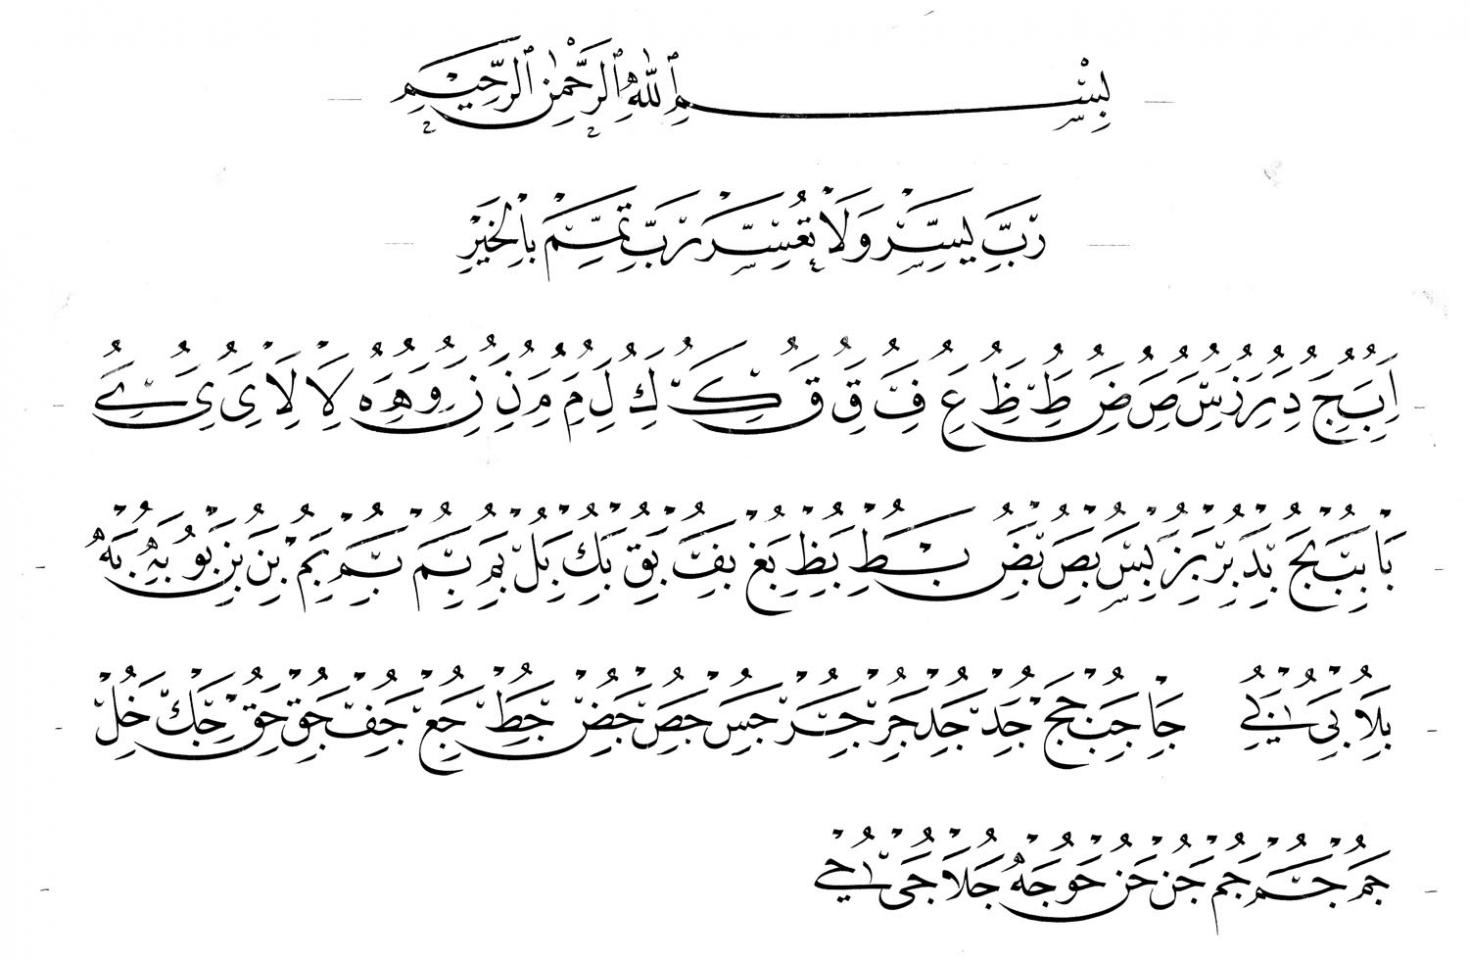 بِسْمِ اللّٰهِ الرَّحْمٰنِ الرَّحِيْمِ
رَبِّ يَسِّرْ وَلَا تُعَسِّرْ رَبِّ تَمِّمْ بِالْخَيْرِ
ا ب ج د ر ز س ص ض ط ظ ع ف ق ق ك ك ل م م ن ن و ه ه لا لا ى ى ے
با بب بج بد بر بز بس بص بض بط بظ بغ بف بق بك بل بم بم بم بم بن بن بو به به
بلا بى بے جا جب جج جد جد جر جر جس جص جض جط جع جف جق حق حك خل
جم جم جم جن حن حو جه جلا جى جے